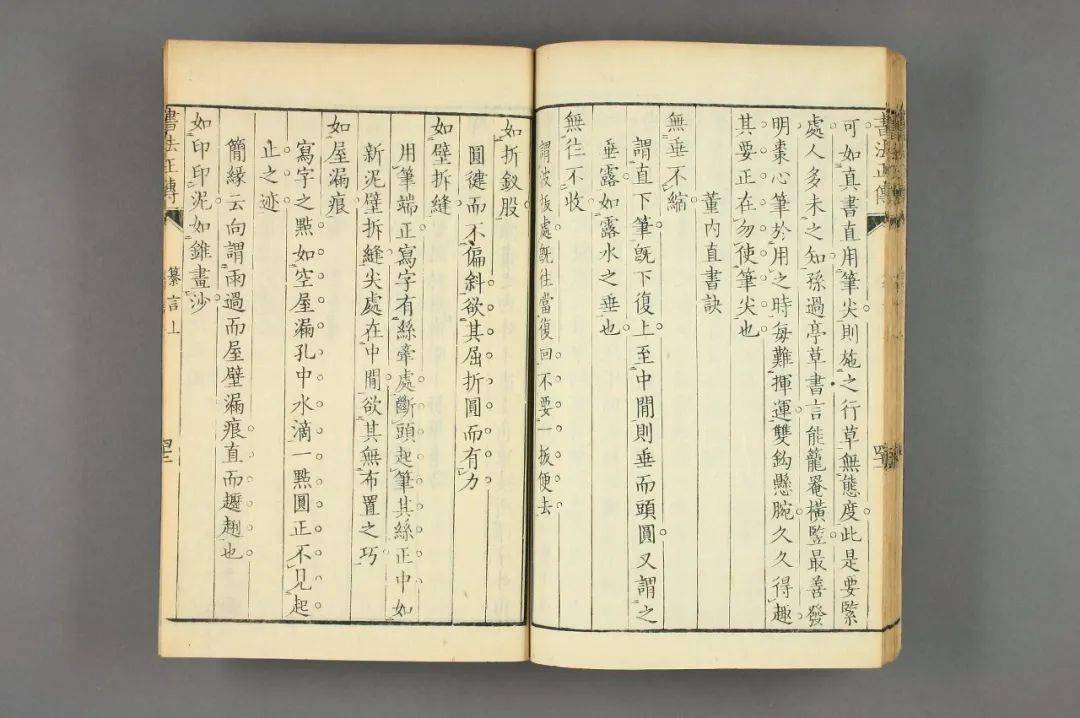 可如真書直用筆尖則施之行草無態度此是要緊
處人多未之知孫過亭草書言能籠罨橫監最善發
明棗心筆於用之時每難揮運雙鈎懸腕久久得趣
其要正在勿使筆尖也
董內直書訣
無垂不縮
謂直下筆既下復上至中間則垂而頭圓又謂之
垂露如露水之垂也
無徃不收
謂波拔處既往當復回不要一拔便去
如折釵股
圓健而不偏斜欲其屈折圓而有力
如壁拆縫
用筆端正寫字有絲牽處斷頭起筆其絲正中如
新泥壁拆縫尖處在中間欲其無布置之巧
如屋漏痕
寫字之點如空屋漏孔中水滴一點圓正不見起
止之迹
簡緣云向謂雨過而屋壁漏痕直而趯趔也
如印印泥如錐畫沙
書法正傳
纂言上